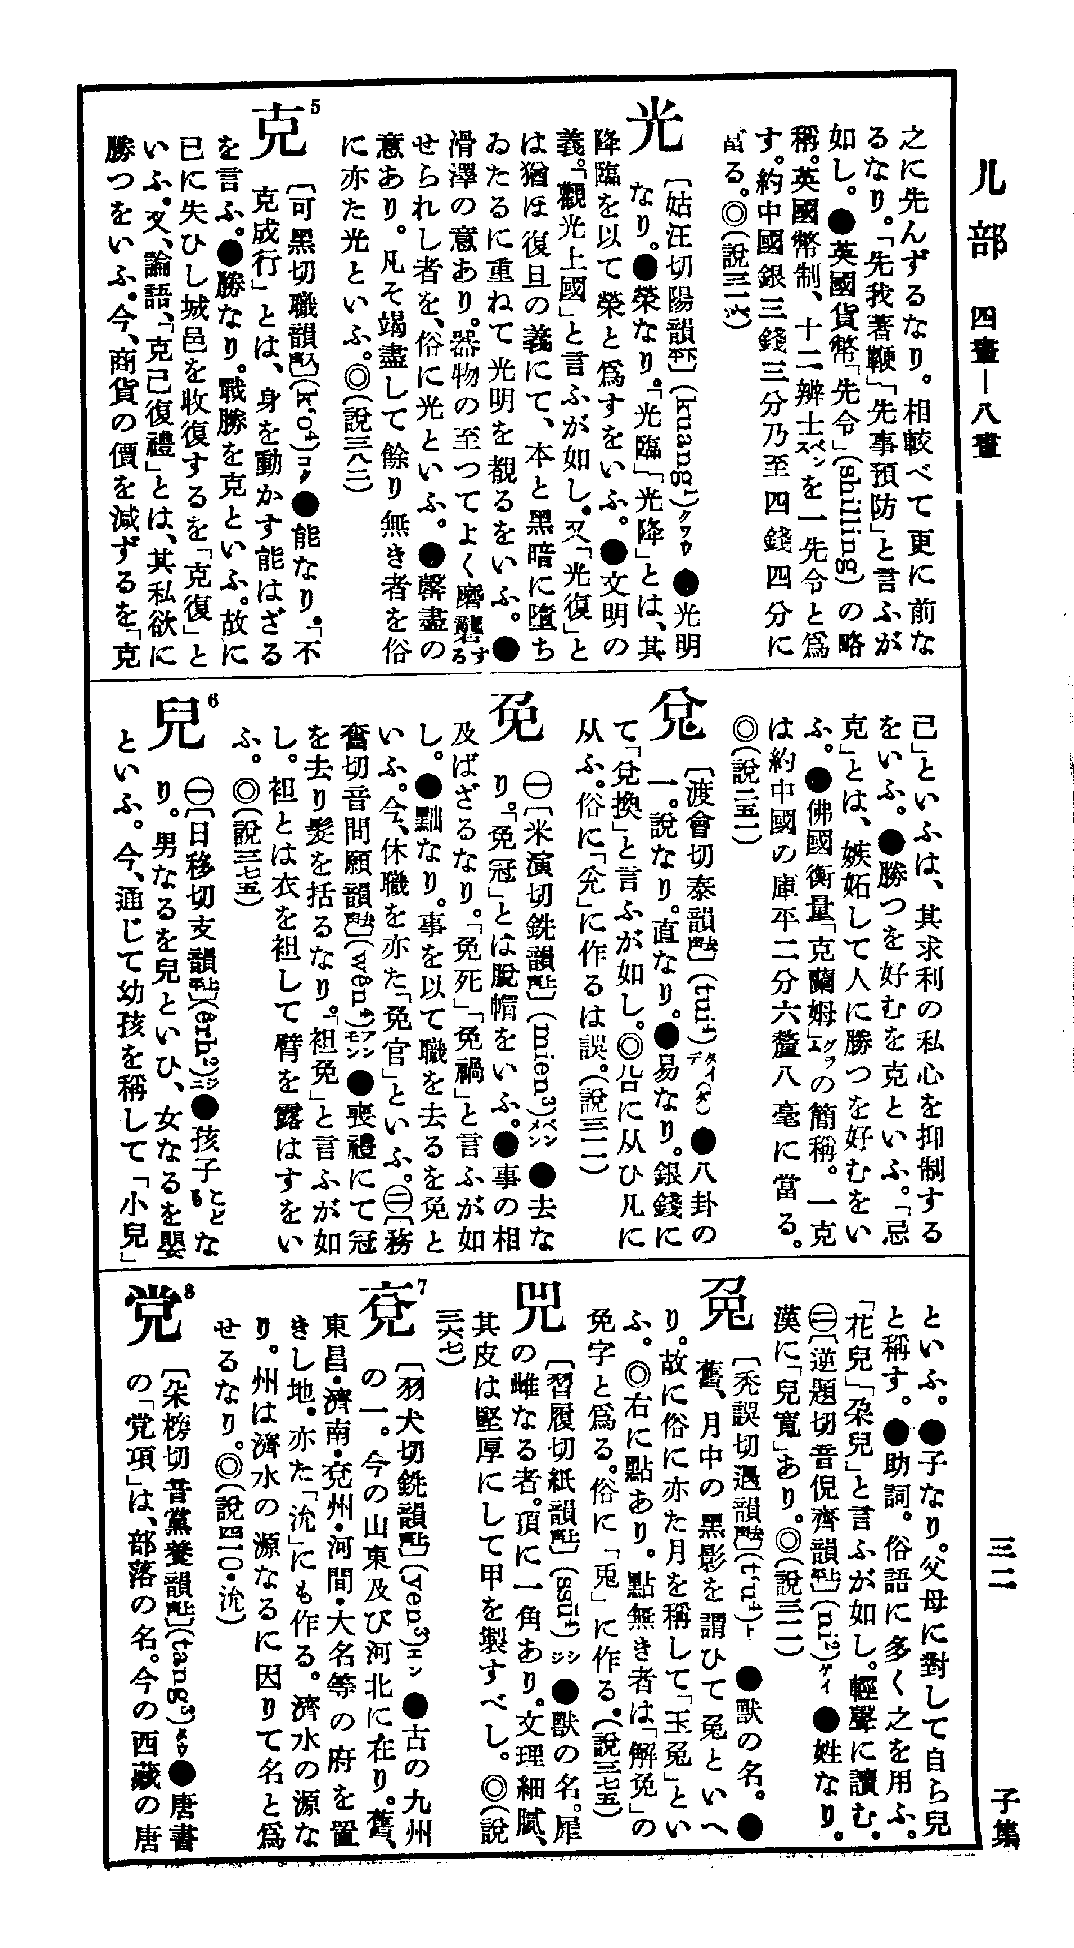 儿部　四畫—八畫
三二
子集
之に先んずるなり。相較べて更に前な
るなり。「先我著鞭」「先事預防」と言ふが
如し。●英國貨幣「先令」(shilling)の略
稱。英國幣制、十二辨士ペンスを一先令と爲
す。約中國銀三錢三分乃至四錢四分に
當る。◎(說三一六)
光
〔姑汪切陽韻〕(kuang¹)クワウ●光明
なり。●榮なり。「光臨」「光降」とは、其
降臨を以て榮と爲すをいふ。●文明の
義。「觀光上國」と言ふが如し。又「光復」と
は猶ほ復旦の義にて、本と黑暗に墮ち
ゐたるに重ねて光明を覩るをいふ。●
滑澤の意あり。器物の至つてよく磨礱する
せられし者を、俗に光といふ。●罄盡の
意あり。凡そ竭盡して餘り無き者を俗
に亦た光といふ。◎(說三八二)
5
克
〔可黑切職韻〕(k'o⁴)コク●能なり。「不
克成行」とは、身を動かす能はざる
を言ふ。●勝なり。戰勝を克といふ。故に
已に失ひし城邑を收復するを「克復」と
いふ。又、論語、「克己復禮」とは、其私欲に
勝つをいふ。今、商貨の價を減ずるを「克
己」といふは、其求利の私心を抑制する
をいふ。●勝つを好むを克といふ。「忌
克」とは、嫉妬して人に勝つを好むをい
ふ。●佛國衡量「克蘭姆」グラムの簡稱。一克
は約中國の庫平二分六釐八毫に當る。
◎(說二五一)
兌
〔渡會切泰韻〕(tui⁴)タイ●八卦の
一。說なり。直なり。●易なり。銀錢に
て「兌換」と言ふが如し。◎㕣に从ひ儿に
从ふ。俗に「兊」に作るは誤。(說三一一)
免
㊀〔米演切銑韻〕(mien³)ベンメン●去な
り。「免冠」とは脫帽をいふ。●事の相
及ばざるなり。「免死」「免禍」と言ふが如
し。●黜なり。事を以て職を去るを免と
いふ。今、休職を亦た「免官」といふ。㊁〔務
奮切音問願韻〕(wên⁴)ブンモン●喪禮にて冠
を去り髮を括るなり。「袒免」と言ふが如
し。袒とは衣を袒して臂を露はすをい
ふ。◎(說三七五)
6
兒
㊀〔日移切支韻〕(êrh²)ジニ●孩子こどもな
り。男なるを兒といひ、女なるを嬰
といふ。今、通じて幼孩を稱して「小兒」
といふ。●子なり。父母に對して自ら兒
と稱す。●助詞。俗語に多く之を用ふ。
「花兒」「朶兒」と言ふが如し。輕聲に讀む。
㊁〔逆題切音倪齊韻〕(ni²)ゲイ●姓なり。
漢に「兒寬」あり。◎(說三一一)
兔
〔禿誤切遇韻〕(t'u⁴)ト●獸の名。●
舊、月中の黑影を謂ひて兔といへ
り。故に俗に亦た月を稱して「玉兔」とい
ふ。◎右に點あり。點無き者は「解免」の
免字と爲る。俗に「兎」に作る。(說三七五)
兕
〔習履切紙韻〕(ssŭ⁴)シジ●獸の名。犀
の雌なる者。頂に一角あり。文理細膩、
其皮は堅厚にして甲を製すべし。◎(說
三六七)
7
兗
〔羽犬切銑韻〕(yen³)エン●古の九州
の一。今の山東及び河北に在り。舊、
東昌・濟南・兗州・河間・大名等の府を置
きし地。亦た「沇」にも作る。濟水の源な
り。州は濟水の源なるに因りて名と爲
せるなり。◎(說四一〇・沇)
8
党
〔朶榜切音黨養韻〕(tang³)タウ●唐書
の「党項」は、部落の名。今の西藏の唐